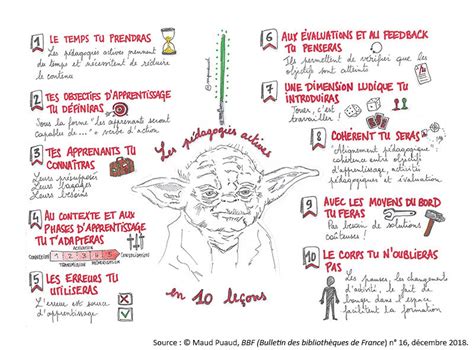 1 LE TEMPS TU PRENDRAS
Les pédagogies actives prennent
du temps et nécessitent de réduire
le contenu
2 TES OBJECTIFS D'APPRENTISSAGE
TU DÉFINIRAS
Sous la forme "les apprenants seront
capable de..." + verbe d'action
3 TES APPRENANTS TU
CONNAÎTRAS
Leurs présupposés
Leurs bagages
Leurs besoins
4 AU CONTEXTE ET AUX
PHASES D'APPRENTISSAGE
TU T'ADAPTERAS
CONNEXION 1 2 3 4 5 CONSOLIDATION
TRANSMISSION MÉMORISATION
5 LES ERREURS TU
UTILISERAS
L'erreur est source
d'apprentissage
Les pédagogies actives
en 10 leçons
6 AUX ÉVALUATIONS ET AU FEEDBACK
TU PENSERAS
Ils permettent de vérifier que les
objectifs sont atteints
7 UNE DIMENSION LUDIQUE TU
INTRODUIRAS
Jouer, c'est
travailler !
8 COHÉRENT TU SERAS
"Alignement pédagogique" :
cohérence entre objectifs
d'apprentissage, activités
pédagogiques et évaluation.
9 AVEC LES MOYENS DU BORD
TU FERAS
Pas besoin de solutions
coûteuses !
10 LE CORPS TU N'OUBLIERAS
PAS
Les pauses, les changements
d'activités, le fait de
bouger dans l'espace
facilitent la formation
Source : © Maud Puaud, BBF (Bulletin des bibliothèques de France) n° 16, décembre 2018.